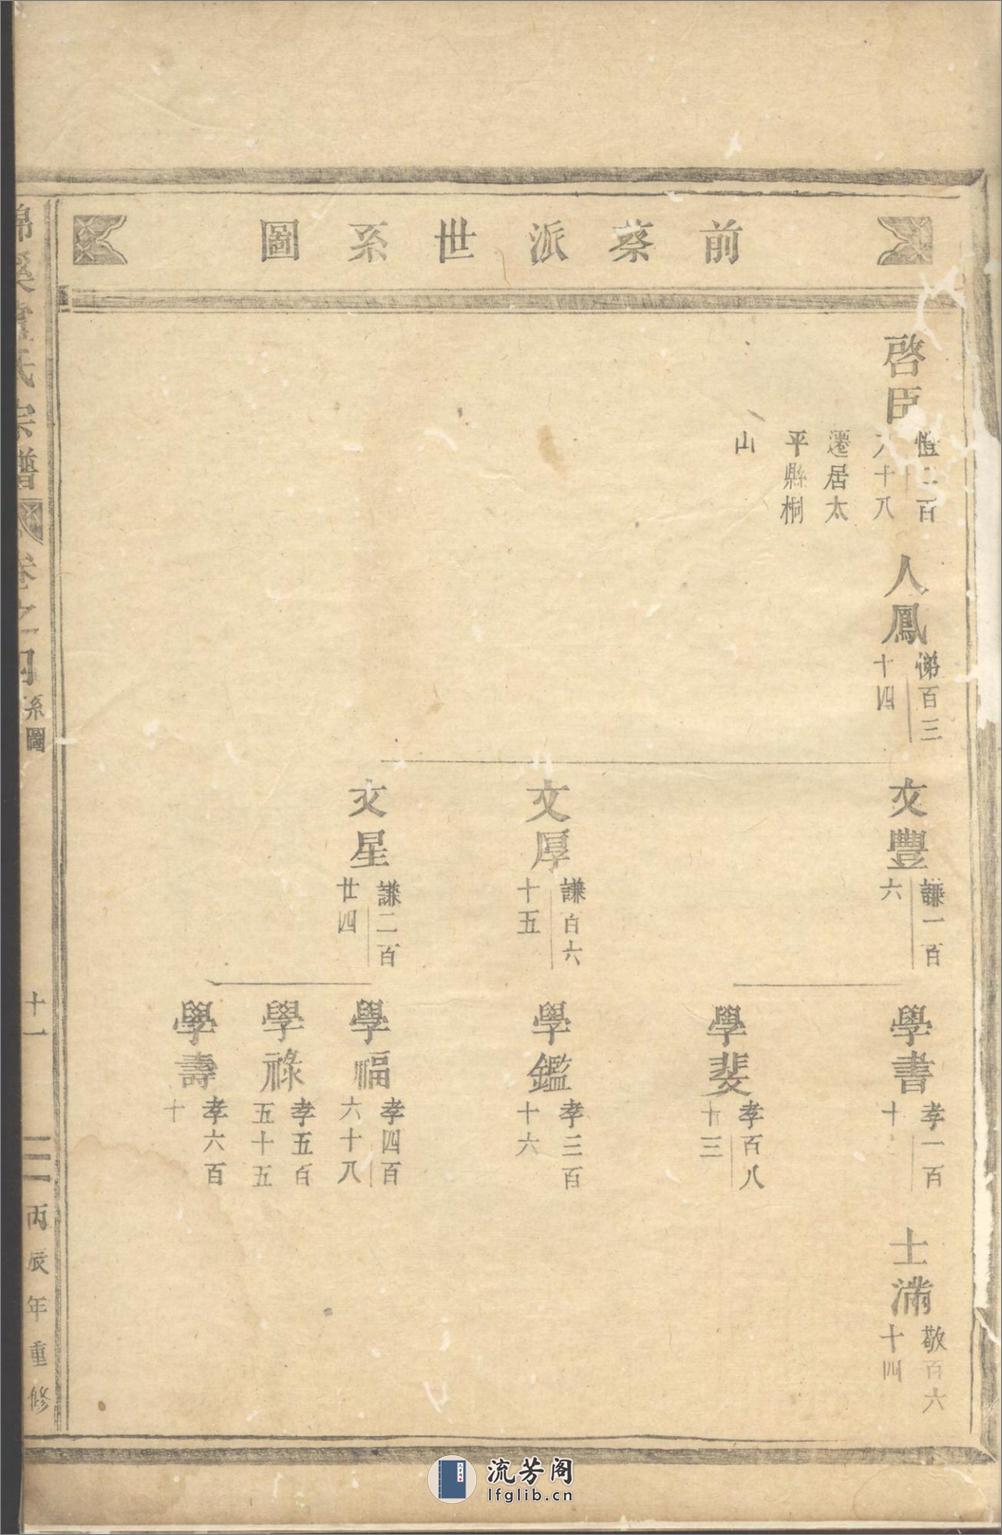 前蔡派世系圖
啓臣
愷二百
六十八
遷居太
平縣桐
山
人鳳
悌百三
十四
文豐
謙一百
六
文厚
謙百六
十五
文星
謙二百
廿四
學書
孝一百
十
學斐
孝百八
十三
學鑑
孝三百
十六
學福
孝四百
六十八
學祿
孝五百
五十五
學壽
孝六百
十
士滿
敬百六
十四
氏宗譜
卷之四
系圖
十一
丙辰年重修
流芳阁
lfglib.cn